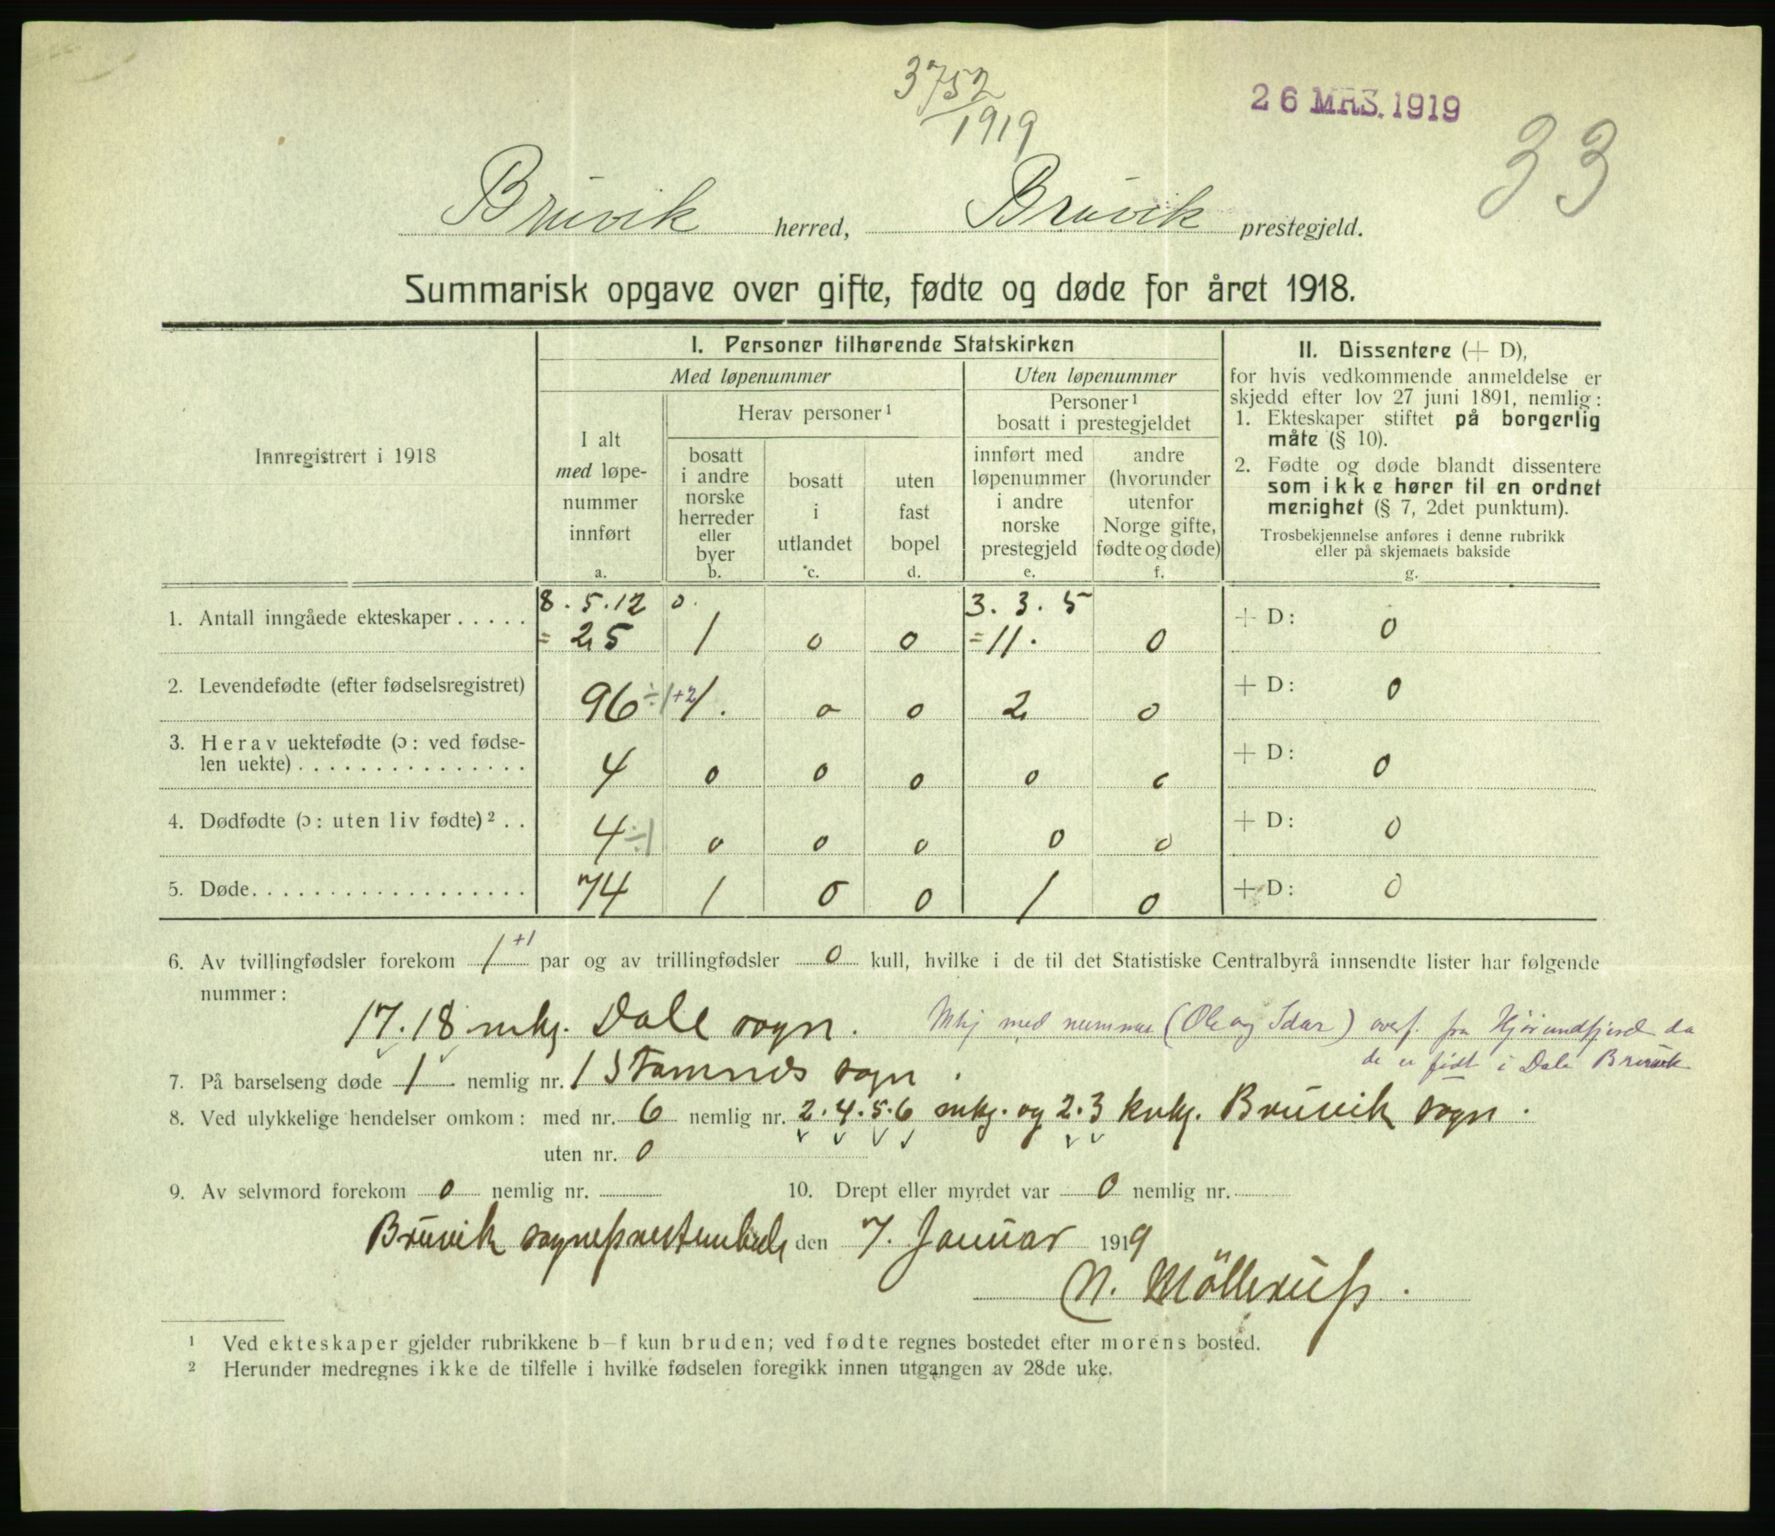 3752
1919
26 MRS. 1919
33
Bruvik herred, Bruvik prestegjeld.
Summarisk opgave over gifte, fødte og døde for året 1918.
Innregistrert i 1918
I. Personer tilhørende Statskirken
Med løpenummer
Uten løpenummer
I alt
med løpe-
nummer
innført
a.
Herav personer ¹
bosatt
i andre
norske
herreder
eller
byer
b.
bosatt
i
utlandet
c.
uten
fast
bopel
d.
Personer ¹
bosatt i prestegjeldet
innført med
løpenummer
i andre
norske
prestegjeld
e.
andre
(hvorunder
utenfor
Norge gifte,
fødte og døde)
f.
II. Dissentere (+ D),
for hvis vedkommende anmeldelse er
skjedd efter lov 27 juni 1891, nemlig:
1. Ekteskaper stiftet på borgerlig
måte (§ 10).
2. Fødte og døde blandt dissentere
som ikke hører til en ordnet
menighet (§ 7, 2det punktum).
Trosbekjennelse anføres i denne rubrikk
eller på skjemaets bakside
g.
8. 5. 12 0. 3. 3. 5
1. Antall inngåede ekteskaper . . . . . = 25 1 0 0 = 11. 0 + D: 0
2. Levendefødte (efter fødselsregistret) 96 ÷1 +2 1. 0 0 2 0 + D: 0
3. Herav uektefødte (ɔ: ved fødse-
len uekte) . . . . . . . . . . . . . . . 4 0 0 0 0 0 + D: 0
4. Dødfødte (ɔ: uten liv fødte) ² . . 4 ÷1 0 0 0 0 0 + D: 0
5. Døde. . . . . . . . . . . . . . . . . . 74 1 0 0 1 0 + D: 0
6. Av tvillingfødsler forekom 1 +1 par og av trillingfødsler 0 kull, hvilke i de til det Statistiske Centralbyrå innsendte lister har følgende
nummer:
17. 18 mkj. Dale sogn. Mkj med nummer (Ole og Idar) overf. fra Hjørundfjord da
de er født i Dale Bruvik
7. På barselseng døde 1 nemlig nr. 1 Stamnes sogn.
8. Ved ulykkelige hendelser omkom: med nr. 6 nemlig nr. 2. 4. 5. 6 mkj. og 2. 3 kvkj. Bruvik sogn.
uten nr. 0
9. Av selvmord forekom 0 nemlig nr.
10. Drept eller myrdet var 0 nemlig nr.
Bruvik sogneprestembede den 7. Januar 1919
N. Möllerup.
¹ Ved ekteskaper gjelder rubrikkene b–f kun bruden; ved fødte regnes bostedet efter morens bosted.
² Herunder medregnes ikke de tilfelle i hvilke fødselen foregikk innen utgangen av 28de uke.